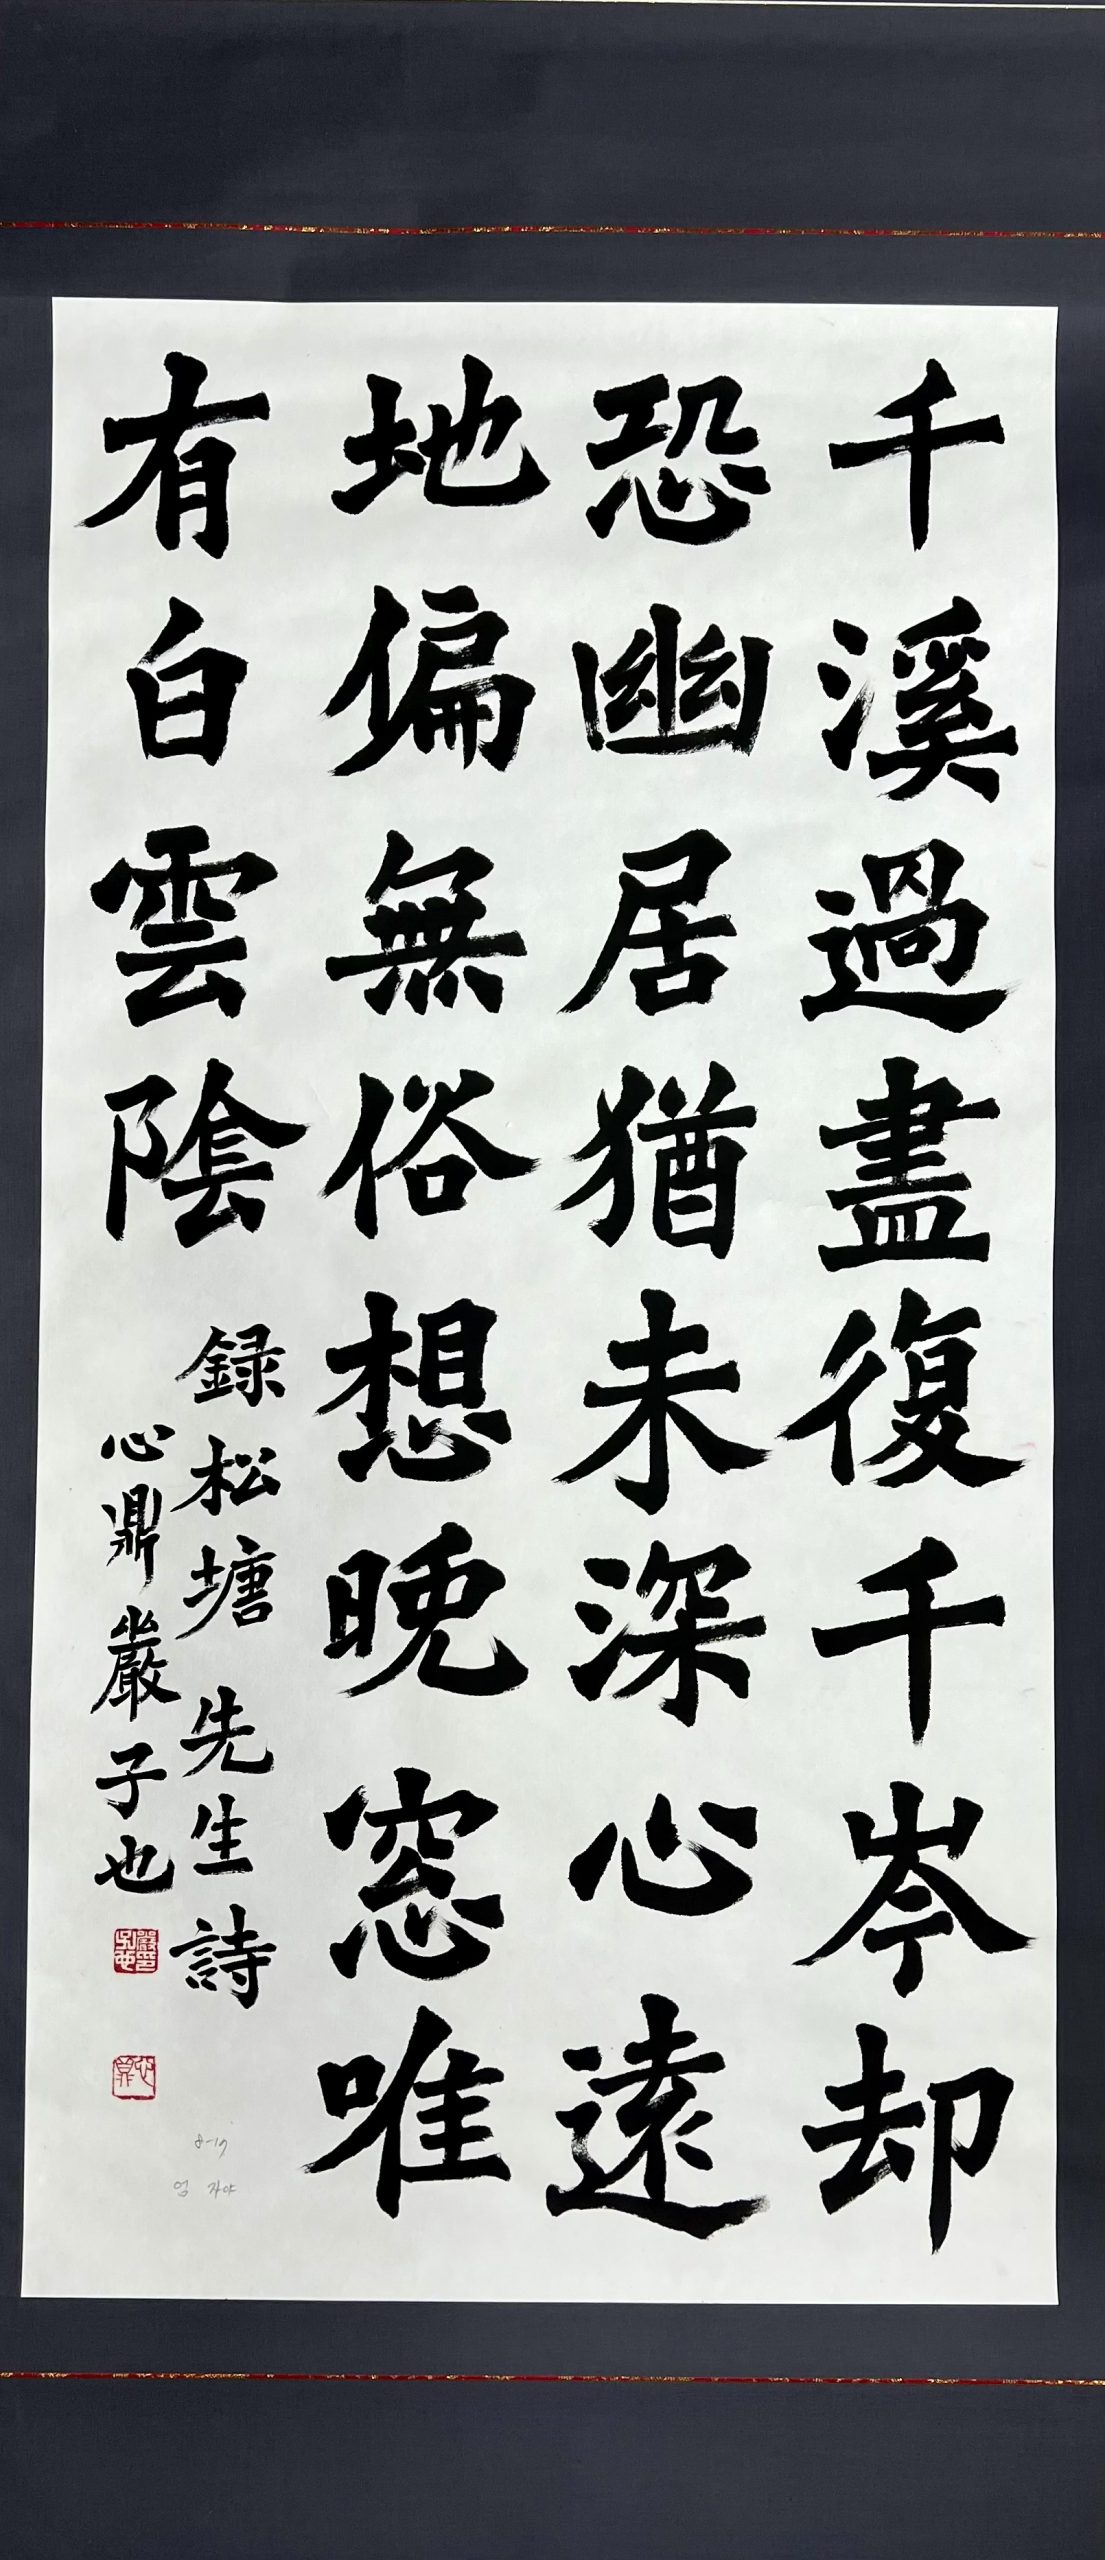 千溪過盡復千岑却
恐幽居猶未深心遠
地偏無俗想晚窓唯
有白雲陰
錄松塘先生詩
心鼎嚴子也
8-17
엄 자야